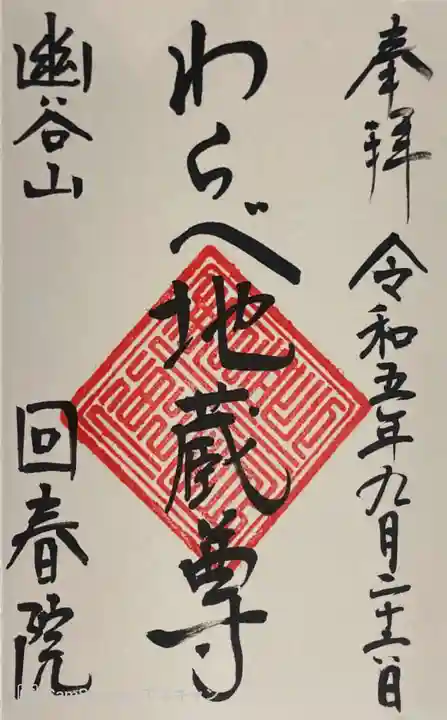 奉拝
令和五年九月二十六日
わらべ地蔵尊
幽谷山
回春院